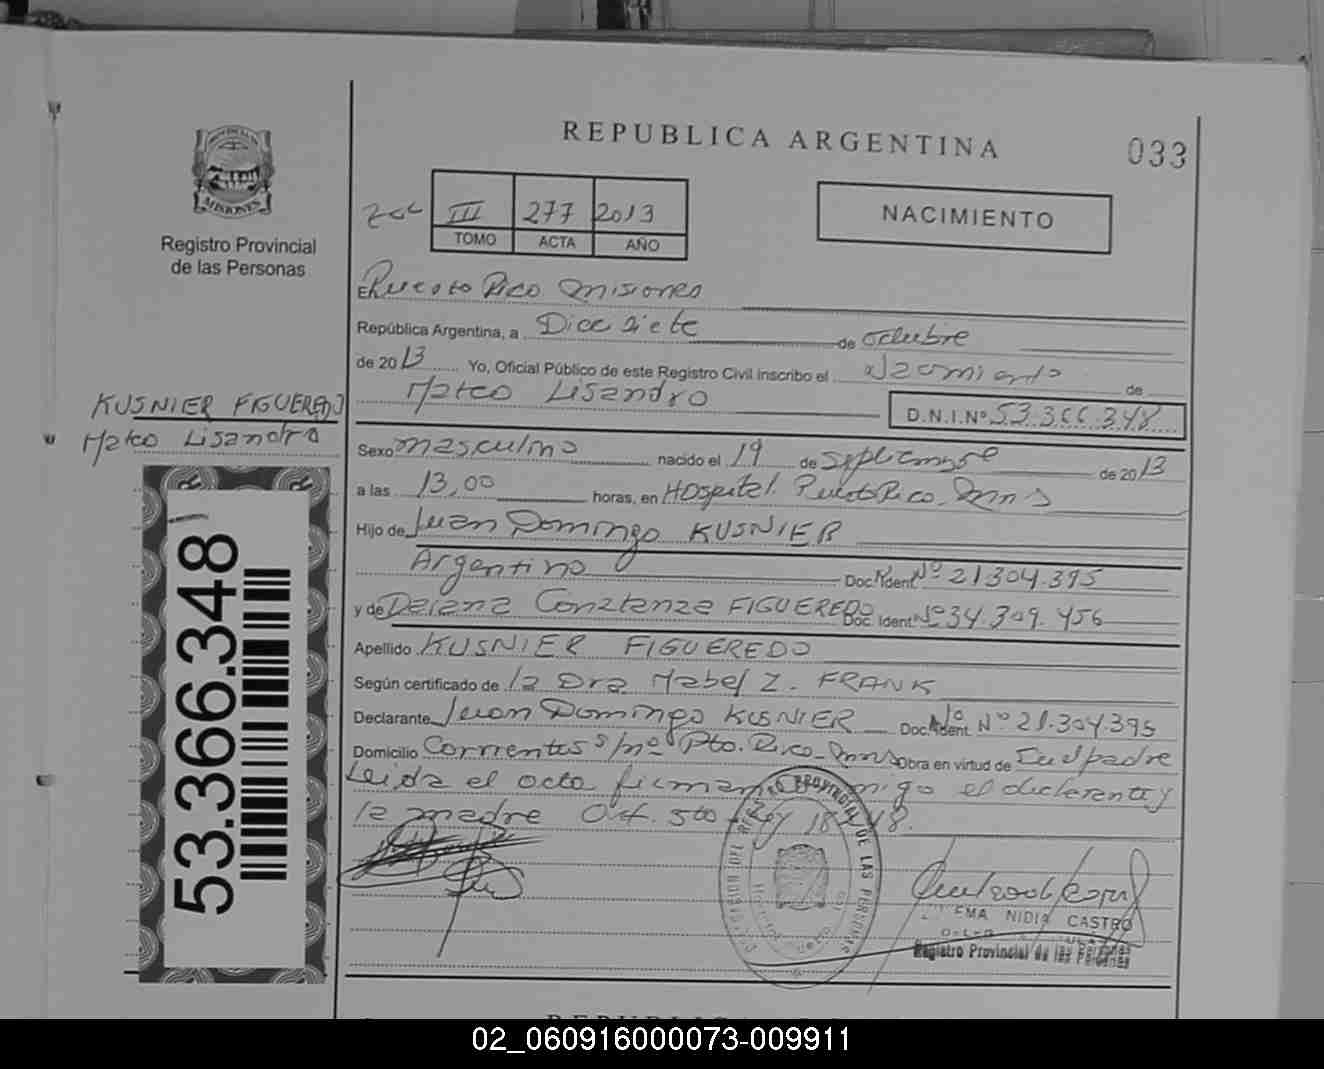 REPUBLICA ARGENTINA
033
PROVINCIA DE MISIONES
Registro Provincial
de las Personas
III 277 2013
TOMO ACTA AÑO
NACIMIENTO
En Puerto Rico Misiones
República Argentina, a Diecisiete de octubre
de 2013 Yo, Oficial Público de este Registro Civil inscribo el Nacimiento de
Mateo Lisandro
D.N.I.Nº 53.366.348
KUSNIER FIGUEREDO
Mateo Lisandro
Sexo masculino nacido el 19 de septiembre de 2013
a las 13,00 horas, en Hospital. Puerto Rico. Mns
Hijo de Juan Domingo KUSNIER
Argentino Doc. Ident. Nº 21.304.395
y de Daiana Constanza FIGUEREDO Doc. Ident. Nº 34.309.456
Apellido KUSNIER FIGUEREDO
Según certificado de la Dra Mabel Z. FRANK
Declarante Juan Domingo KUSNIER Doc. Ident. Nº 21.304.395
Domicilio Corrientes s/nº Pto. Rico - Mns Obra en virtud de padre
Leida el acta firman migo el declarante y
la madre Art. 5to Ley 18
53.366.348
PROVINCIAL DE LAS PERSONAS
NIDIA CASTRO
Registro Provincial de las Personas
02_060916000073-009911